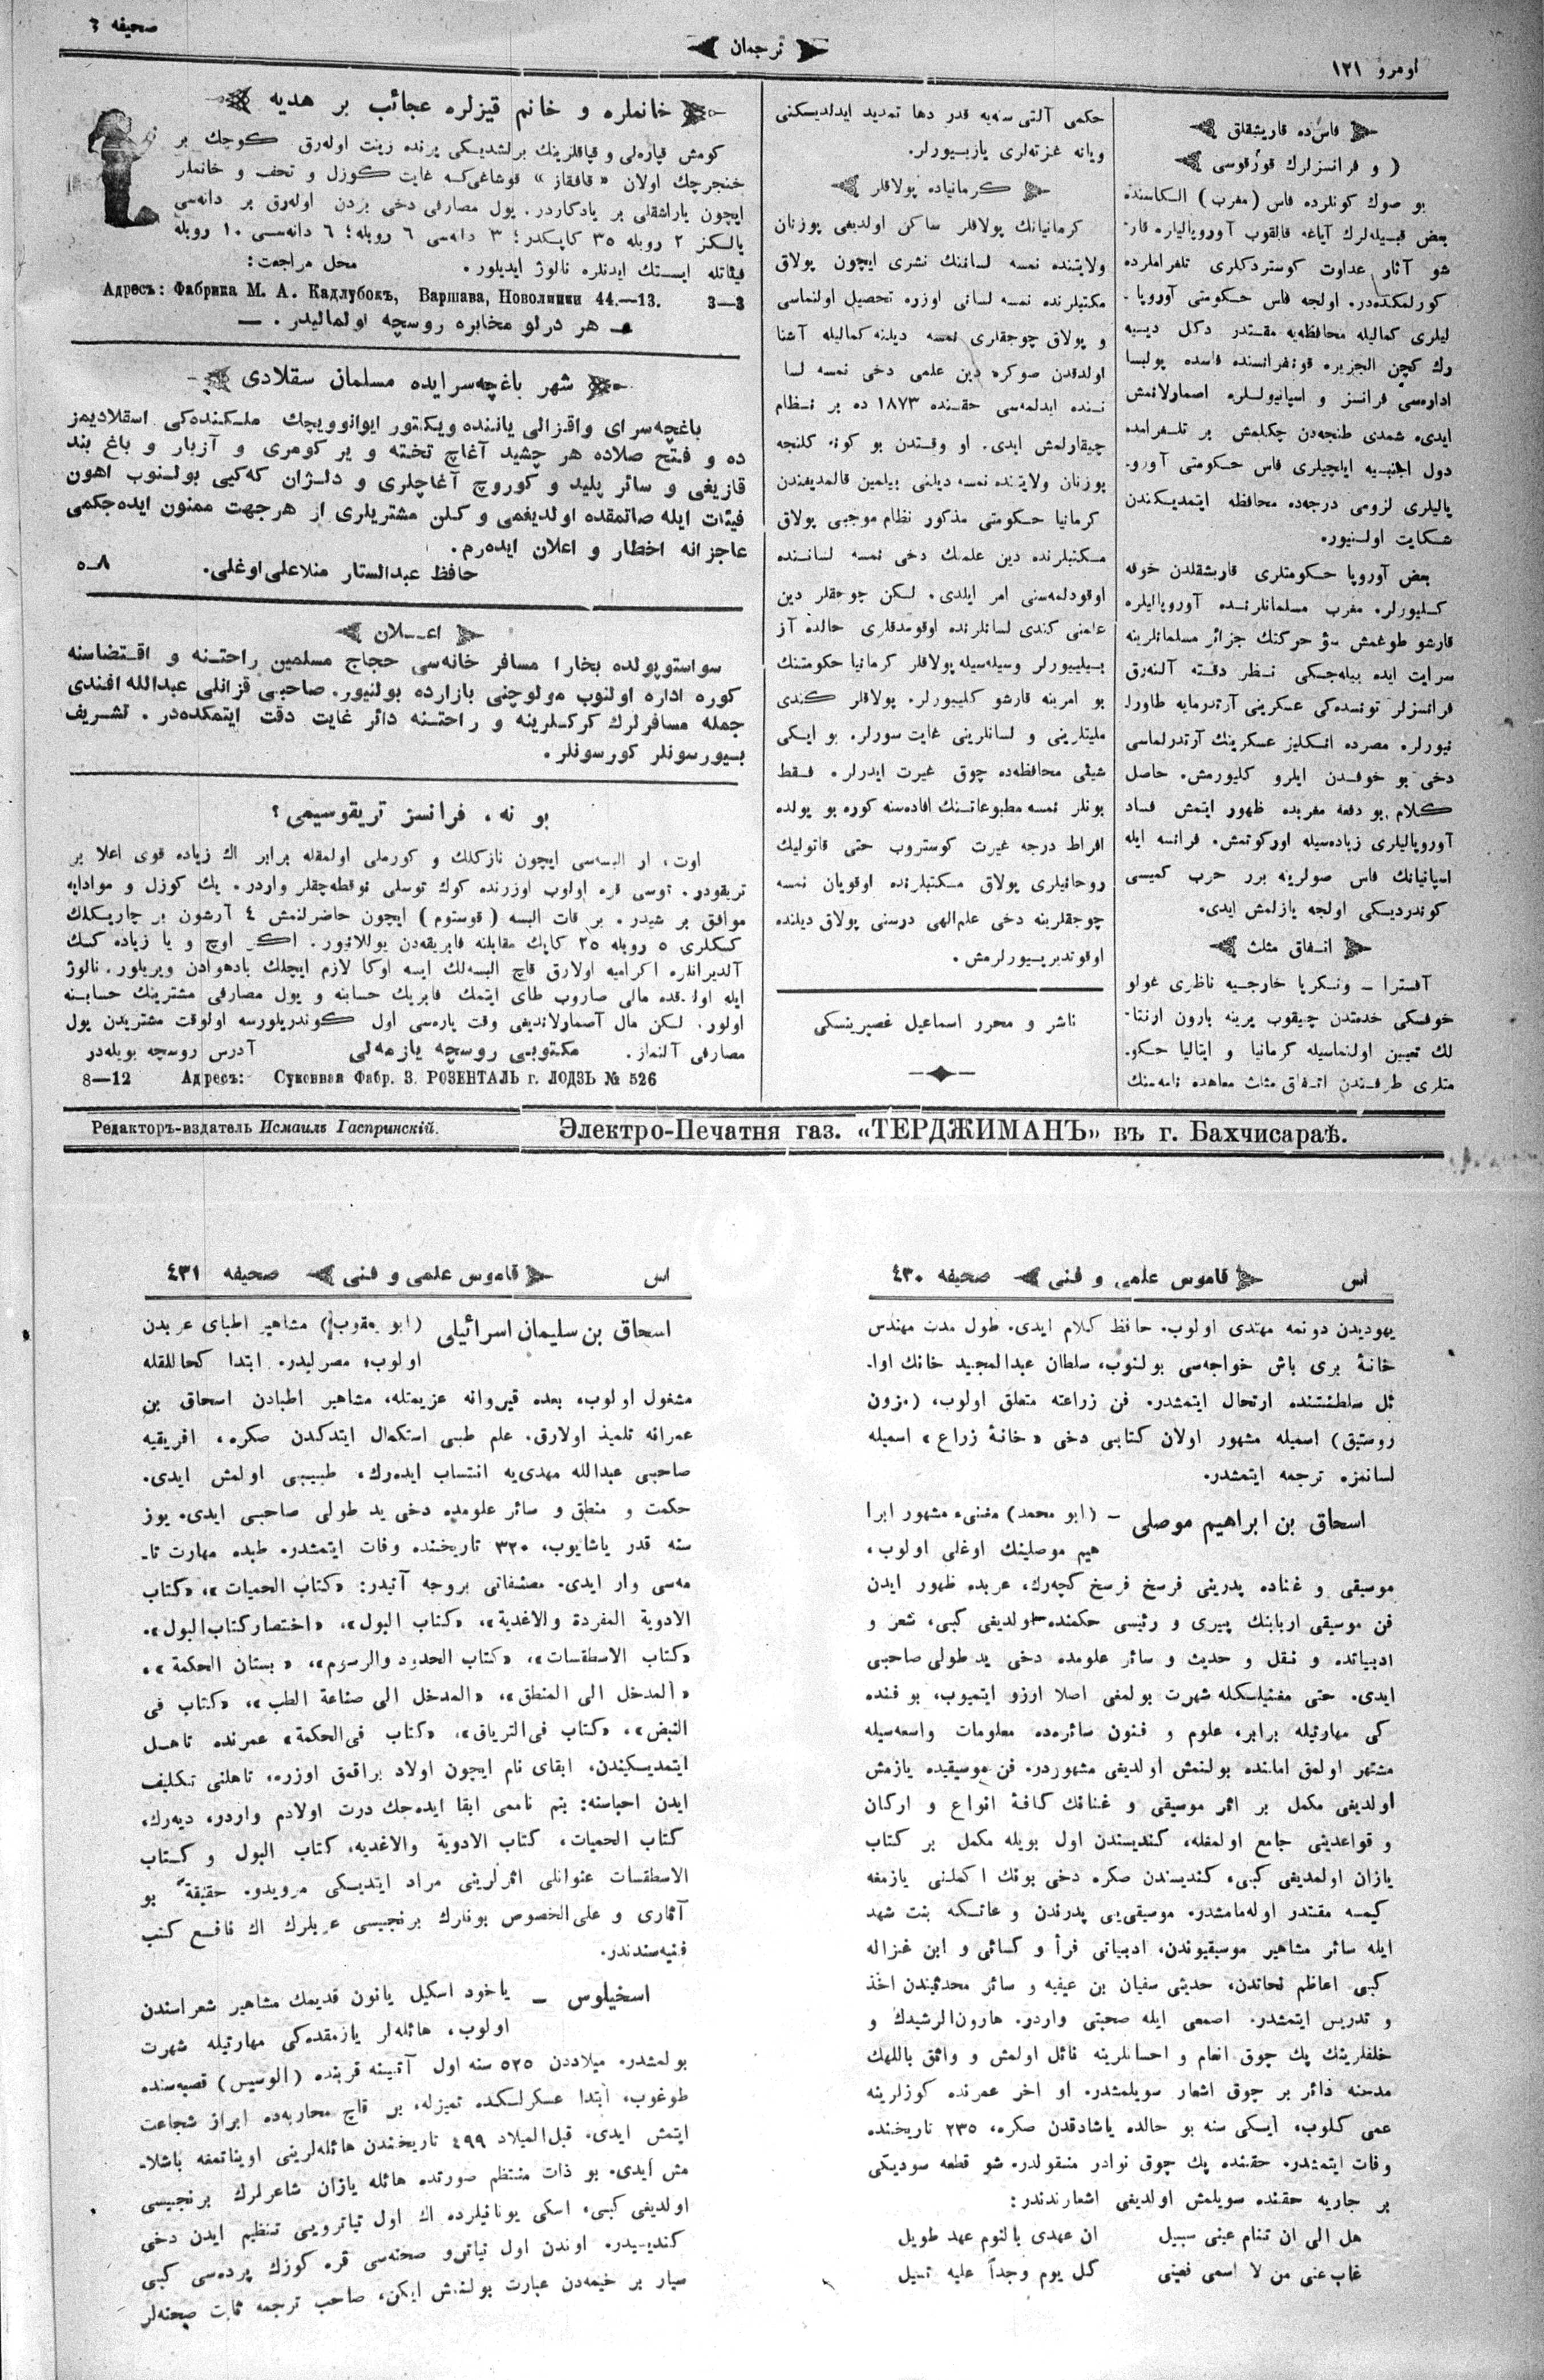 اومرو ١٢١
ترجمان
صحيفه ٣
فاس‌ده قاريشقلق
( و فرانسزلرك قورقوسى
بو صوك كونلرده فاس (مغرب) الكاسنده
بعض قبيله‌لرك آياغه قالقوب آوروپاليلره قار-
شو آثار عداوت كوستردكلرى تلغرافلرده
كورلمكده‌در. اولجه فاس حكومتى آوروپا-
ليلرى كماليله محافظه‌يه مقتدر دكل ديبه
رك كچن الجزيره قونفرانسنده فاسده پوليسا
اداره‌سى فرانسز و اسپانيوللره اصمارلانمش
ايدى. شمدى طنجه‌دن چكلمش بر تلغرافده
دول اجنبيه ايلچيلرى فاس حكومتى آورو-
پاليلرى لزومى درجه‌ده محافظه ايتمديكندن
شكايت اولنيور.
بعض آوروپا حكومتلرى قاريشقلدن خوفه
كليورلر. مغرب مسلمانلرنده آوروپاليلره
قارشو طوغمش سؤ حركتك جزائر مسلمانلرينه
سرايت ايده بيله‌جكى نظر دقته آلنه‌رق
فرانسزلر تونسده‌كى عسكرينى آرتدرمايه طاورا-
نيورلر. مصرده انكليز عسكرينك آرتدرلماسى
دخى بو خوفدن ايلرو كليورمش. حاصل
كلام بو دفعه مغربده ظهور ايتمش فساد
آوروپاليلرى زياده‌سيله اوركوتمش. فرانسه ايله
اسپانيانك فاس صولرينه برر حرب كميسى
كوندرديكى اولجه يازلمش ايدى.
اتفاق مثلث
آفسترا ـ ونكريا خارجيه ناظرى غولو
خوفسكى خدمتدن چيقوب يرينه بارون ارنتا-
لك تعيين اولنماسيله كرمانيا و ايتاليا حكو-
متلرى طرفندن اتفاق مثلث معاهده نامه‌سنك
حكمى آلتى سنه‌يه قدر دها تمديد ايدلديكنى
ويانه غزته‌لرى يازييورلر.
كرمانياده پولاقلر
كرمانيانك پولاقلر ساكن اولديغى پوزنان
ولايتنده نمسه لساننك نشرى ايچون پولاق
مكتبلرنده نمسه لسانى اوزره تحصيل اولنماسى
و پولاق چوجقلرى نمسه ديلنه كماليله آشنا
اولدقدن صوكره دين علمى دخى نمسه لسا
ننده ايدلمه‌سى حقنده ١٨٧٣ ده بر نظام
چيقارلمش ايدى. او وقتدن بو كونه كلنجه
پوزنان ولايتنده نمسه ديلنى بيلمين قالمديغندن
كرمانيا حكومتى مذكور نظام موجبى پولاق
مكتبلرنده دين علمنك دخى نمسه لساننده
اوقودلمه‌سنى امر ايلدى. لكن چوجقلر دين
علمنى كندى لسانلرنده اوقومدقلرى حالده آز
بيلييورلر وسيله‌سيله پولاقلر كرمانيا حكومتنك
بو امرينه قارشو كلييورلر. پولاقلر كندى
مليتلرينى و لسانلرينى غايت سورلر. بو ايكى
شيئى محافظه‌ده چوق غيرت ايدرلر. فقط
بونلر نمسه مطبوعاتنك افاده‌سنه كوره بو يولده
افراط درجه غيرت كوستروب حتى قاتوليك
روحانيلرى پولاق مكتبلرنده اوقويان نمسه
چوجقلرينه دخى علم‌الهى درسنى پولاق ديلنده
اوقونديرييورلرمش.
ناشر و محرر اسماعيل غصپرينسكى
خانملره و خانم قيزلره عجائب بر هديه
كومش قپاره‌لى و قپاقلرينك برلشديكى يرنده زينت اوله‌رق كوچك بر
خنجرچك اولان «قافقاز» قوشاغى‌كسه غايت كوزل و تحف و خانملر
ايچون ياراشقلى بر يادكاردر. يول مصارفى دخى بزدن اوله‌رق بر دانه‌سى
يالكز ٢ روبله ٣٥ كاپكدر؛ ٣ دانه‌سى ٦ روبله؛ ٦ دانه‌سى ١٠ روبله
فيئاتله ايستك ايدنلره نالوژ ايديلور. محل مراجعت:
Адресъ: Фабрика М. А. Кадлубокъ, Варшава, Новолипки 44.—13. 3—3
هر درلو مخابره روسچه اولماليدر. —
شهر باغچه‌سرايده مسلمان سقلادى
باغچه‌سراى واقزالى ياننده ويكتور ايوانوويچك ملكنده‌كى اسقلاديمز
ده و فتح صلاده هر چشيد آغاچ تخته و ير كومرى و آزبار و باغ بند
قازيغى و سائر پليد و كوروچ آغاچلرى و دلژان كه‌كيى بولنوب اهون
فيئات ايله صاتمقده اولديغمى و كلن مشتريلرى از هرجهت ممنون ايده‌جكمى
عاجزانه اخطار و اعلان ايده‌رم.
حافظ عبدالستار منلاعلى‌اوغلى. ٨ـ٥
اعلان
سواستوپولده بخارا مسافر خانه‌سى حجاج مسلمين راحتنه و اقتضاسنه
كوره اداره اولنوب مولوچنى بازارده بولنيور. صاحبى قزانلى عبدالله افندى
جمله مسافرلرك كركلرينه و راحتنه دائر غايت دقت ايتمكده‌در. تشريف
بيورسونلر كورسونلر.
بو نه، فرانسز تريقوسيمى؟
اوت، ار البسه‌سى ايچون نازكلك و كورملى اولمقله برابر اك زياده قوى اعلا بر
تريقودر. توسى قره اولوب اوزرنده كوك توسلى نوقطه‌چقلر واردر. پك كوزل و موادايه
موافق بر شيدر. بر قات البسه (قوستوم) ايچون حاضرلنمش ٤ آرشون بر چاريكلك
كسكلرى ٥ روبله ٢٥ كاپك مقابلنه فابريقه‌دن يوللانيور. اكر اوچ و يا زياده كسك
آلديرانلره اكراميه اولارق قاچ البسه‌لك ايسه اوكا لازم ايچلك بادهوادن ويريلور. نالوژ
ايله اولدقده مالى صاروب طاى ايتمك فابريك حسابنه و يول مصارفى مشترينك حسابنه
اولور. لكن مال آصمارلانديغى وقت پاره‌سى اول كوندريلورسه اولوقت مشتريدن يول
مصارفى آلنماز. مكتوبى روسچه يازمه‌لى آدرس روسچه بويله‌در
8—12 Адресъ: Суконная Фабр. З. РОЗЕНТАЛЬ г. ЛОДЗЬ № 526
Редакторъ-издатель Исмаилъ Гаспринскій. Электро-Печатня газ. «ТЕРДЖИМАНЪ» въ г. Бахчисараѣ.
اس قاموس علمى و فنى صحيفه ٤٣٠
يهوديدن دونمه مهتدى اولوب. حافظ كلام ايدى. طول مدت مهندس
خانهٔ برى باش خواجه‌سى بولنوب، سلطان عبدالمجيد خانك اوا-
ئل سلطنتنده ارتحال ايتمشدر. فن زراعته متعلق اولوب، (مزون
روستيق) اسميله مشهور اولان كتابى دخى «خانهٔ زراع» اسميله
لسانمزه ترجمه ايتمشدر.
اسحاق بن ابراهيم موصلى – (ابو محمد) مغنىء مشهور ابرا
هيم موصلينك اوغلى اولوب،
موسيقى و غناده پدرينى فرسخ فرسخ كچه‌رك، عربده ظهور ايدن
فن موسيقى اربابنك پيرى و رئيسى حكمنده اولديغى كبى، شعر و
ادبياتده و نقل و حديث و سائر علومده دخى يد طولى صاحبى
ايدى. حتى مغنيلكله شهرت بولمغى اصلا ارزو ايتميوب، بو فنده
كى مهارتيله برابر، علوم و فنون سائره‌ده معلومات واسعه‌سيله
مشتهر اولمق املنده بولنمش اولديغى مشهوردر. فن موسيقيده يازمش
اولديغى مكمل بر اثر موسيقى و غنانك كافهٔ انواع و اركان
و قواعدينى جامع اولمغله، كنديسندن اول بويله مكمل بر كتاب
يازان اولمديغى كبى، كنديسندن صكره دخى بونك اكملنى يازمغه
كيمسه مقتدر اوله‌مامشدر. موسيقى‌يى پدرندن و عاتكه بنت شهد
ايله سائر مشاهير موسيقيوندن، ادبياتى فرأ و كسائى و ابن غزاله
كبى اعاظم نحاتدن، حديثى سفيان بن عيفيه و سائر محدثيندن اخذ
و تدريس ايتمشدر. اصمعى ايله صحبتى واردر. هارون‌الرشيدك و
خلفلرينك پك چوق انعام و احسانلرينه نائل اولمش و واثق باللهك
مدحنه دائر بر چوق اشعار سويلمشدر. او اخر عمرنده كوزلرينه
عمى كلوب، ايكى سنه بو حالده ياشادقدن صكره، ٢٣٥ تاريخنده
وفات ايتمشدر. حقنده پك چوق نوادر منقولدر. شو قطعه سوديكى
بر جاريه حقنده سويلمش اولديغى اشعارندندر:
هل الى ان تنام عينى سبيل ان عهدى بالنوم عهد طويل
غاب عنى من لا اسمى فعينى كل يوم وجداً عليه تسيل
اس قاموس علمى و فنى صحيفه ٤٣١
اسحاق بن سليمان اسرائيلى (ابو يعقوب) مشاهير اطباى عربدن
اولوب، مصرليدر. ابتدا كحاللقله
مشغول اولوب، بعده قيروانه عزيمتله، مشاهير اطبادن اسحاق بن
عمرانه تلميذ اولارق. علم طبى استكمال ايتدكدن صكره، افريقيه
صاحبى عبدالله مهدى‌يه انتساب ايده‌رك، طبيبى اولمش ايدى.
حكمت و منطق و سائر علومده دخى يد طولى صاحبى ايدى. يوز
سنه قدر ياشايوب، ٣٢٠ تاريخنده وفات ايتمشدر. طبده مهارت تا-
مه‌سى وار ايدى. مصنفاتى بروجه آتيدر: «كتاب الحميات»، «كتاب
الادوية المفردة والاغدية»، «كتاب البول»، «اختصاركتاب‌البول».
«كتاب الاسطقسات»، «كتاب الحدود والرسوم»، «بستان الحكمة»،
«المدخل الى المنطق»، «المدخل الى صناعة الطب»، «كتاب فى
النبض»، «كتاب فى‌الترياق»، «كتاب فى‌الحكمة» عمرنده تاهل
ايتمديكيندن، ابقاى نام ايچون اولاد براقمق اوزره، تاهلنى تكليف
ايدن احباسنه: بنم نامى ابقا ايده‌جك درت اولادم واردو، ديه‌رك،
كتاب الحميات، كتاب الادوية والاغديه، كتاب البول و كتاب
الاسطقسات عنوانلى اثرلرينى مراد ايتديكى مرويدو. حقيقة بو
آثارى و على‌الخصوص بونلرك برنجيسى عربلرك اك نافع كتب
فنيه‌سندندر.
اسخيلوس – ياخود اسكيل يانون قديمك مشاهير شعراسندن
اولوب، هائله‌لر يازمقده‌كى مهارتيله شهرت
بولمشدر. ميلاددن ٥٢٥ سنه اول آتينه قربنده (الوسيس) قصبه‌سنده
طوغوب، ابتدا عسكرلكده تميزله، بر قاچ محاربه‌ده ابراز شجاعت
ايتمش ايدى. قبل‌الميلاد ٤٩٩ تاريخندن هائله‌لرينى اويناتمغه باشلا-
مش ايدى. بو ذات منتظم صورتده هائله يازان شاعرلرك برنجيسى
اولديغى كبى، اسكى يونانيلرده اك اول تياترويى تنظيم ايدن دخى
كنديسيدر. اوندن اول تياترو صحنه‌سى قره كوزك پرده‌سى كبى
سيار بر خيمه‌دن عبارت بولنمش ايكن، صاحب ترجمه ثابت صحنه‌لر